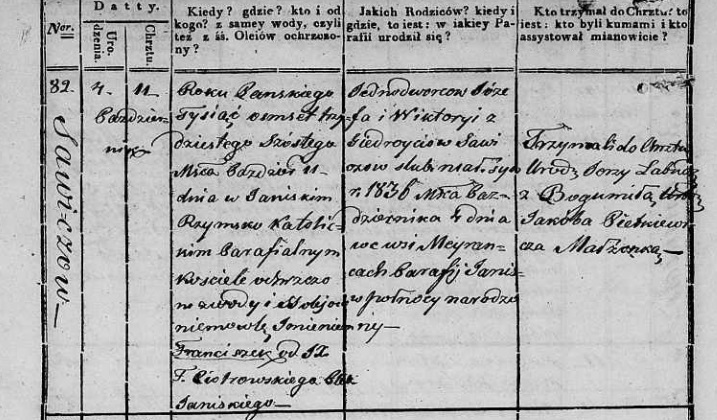 Nor.
Datty.
Uro-
dzenia.
Chrztu.
Kiedy? gdzie? kto i od
kogo? z samey wody, czyli
też z śś. Oleiów ochrzczo-
ny?
Jakich Rodziców? kiedy i
gdzie, to iest: w iakiey Pa-
rafii urodził się?
Kto trzymał do Chrztu? to
iest: kto byli kumami i kto
assystował mianowicie?
82.
Sawiczow
4.
11.
Paździer-
nika
Roku Pańskiego
Tysiąc osmset trzy-
dziestego Szóstego
Mca Paździer 11
dnia w Janiskim
Rzymsko Katolic-
kim Parafialnym
Kosciele ochrzczo
no z wody i S Olejow
niemowlę Imieniem
Franciszek od JX
F. Piotrowskiego
Janiskiego
Jednodworcow Józe
fa i Wiktoryi z
Giedroyciow Sawi
czow slub: małż. syn
r. 1836 Mca Paz-
dziernika 4 dnia
we wsi Meyran-
cach Parafij Janis-
w północy narodzo
ny
Trzymali do Chrztu
Urodz Jerzy
z Bogumiłą Urodz
Jakóba Pietkiewi
cza Małżonką